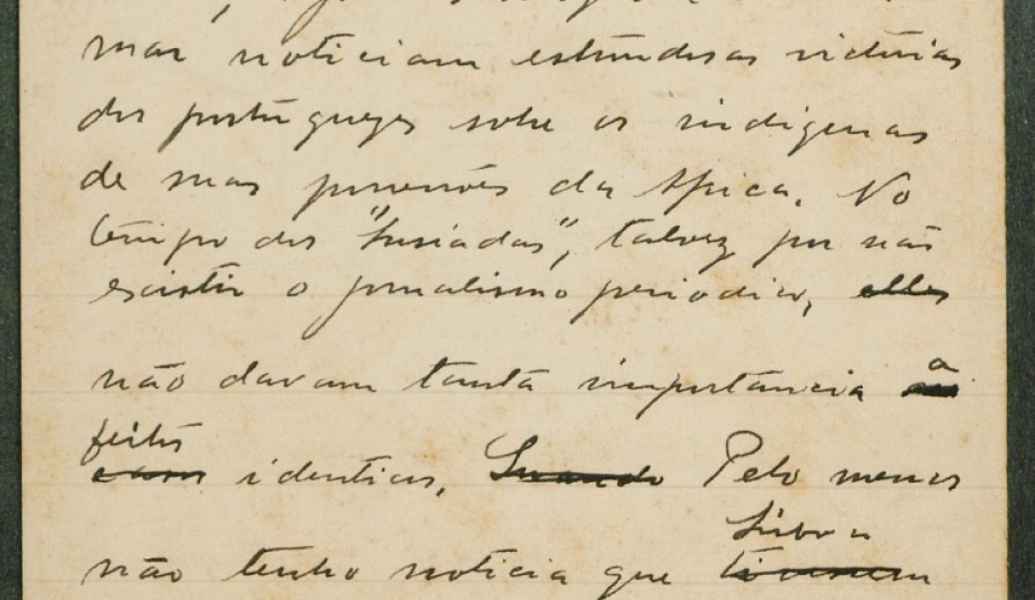 mar noticiam estrondosas victorias
dos portuguezes sobre os indigenas
de suas possessões da Africa. No
tempo dos "Lusiadas", talvez por não
existir o jornalismo periodico, elles
não davam tanta importancia a
feitos
casos identicos, Quando Pelo menos
Lisboa
não tenho noticia que tivessem